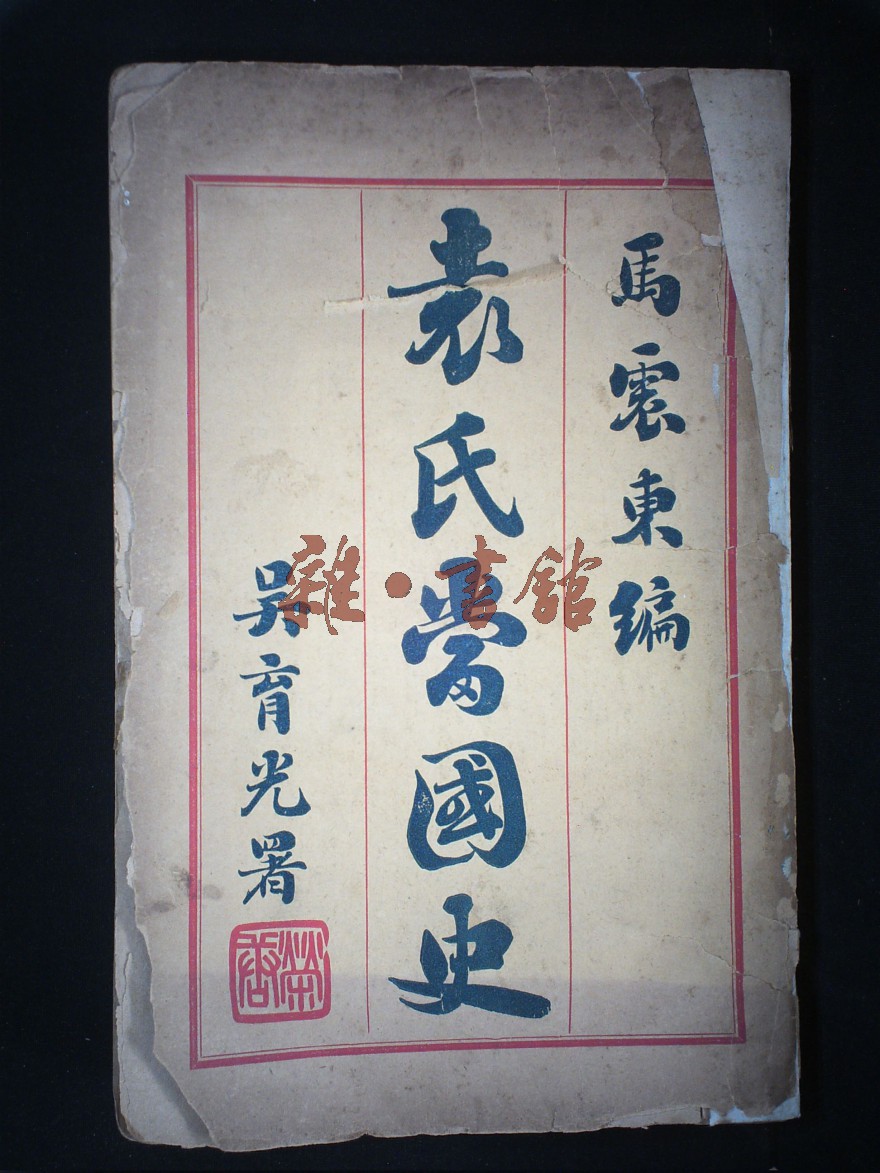 馬震東編
袁氏當國史
吳育光署
雜·書舘